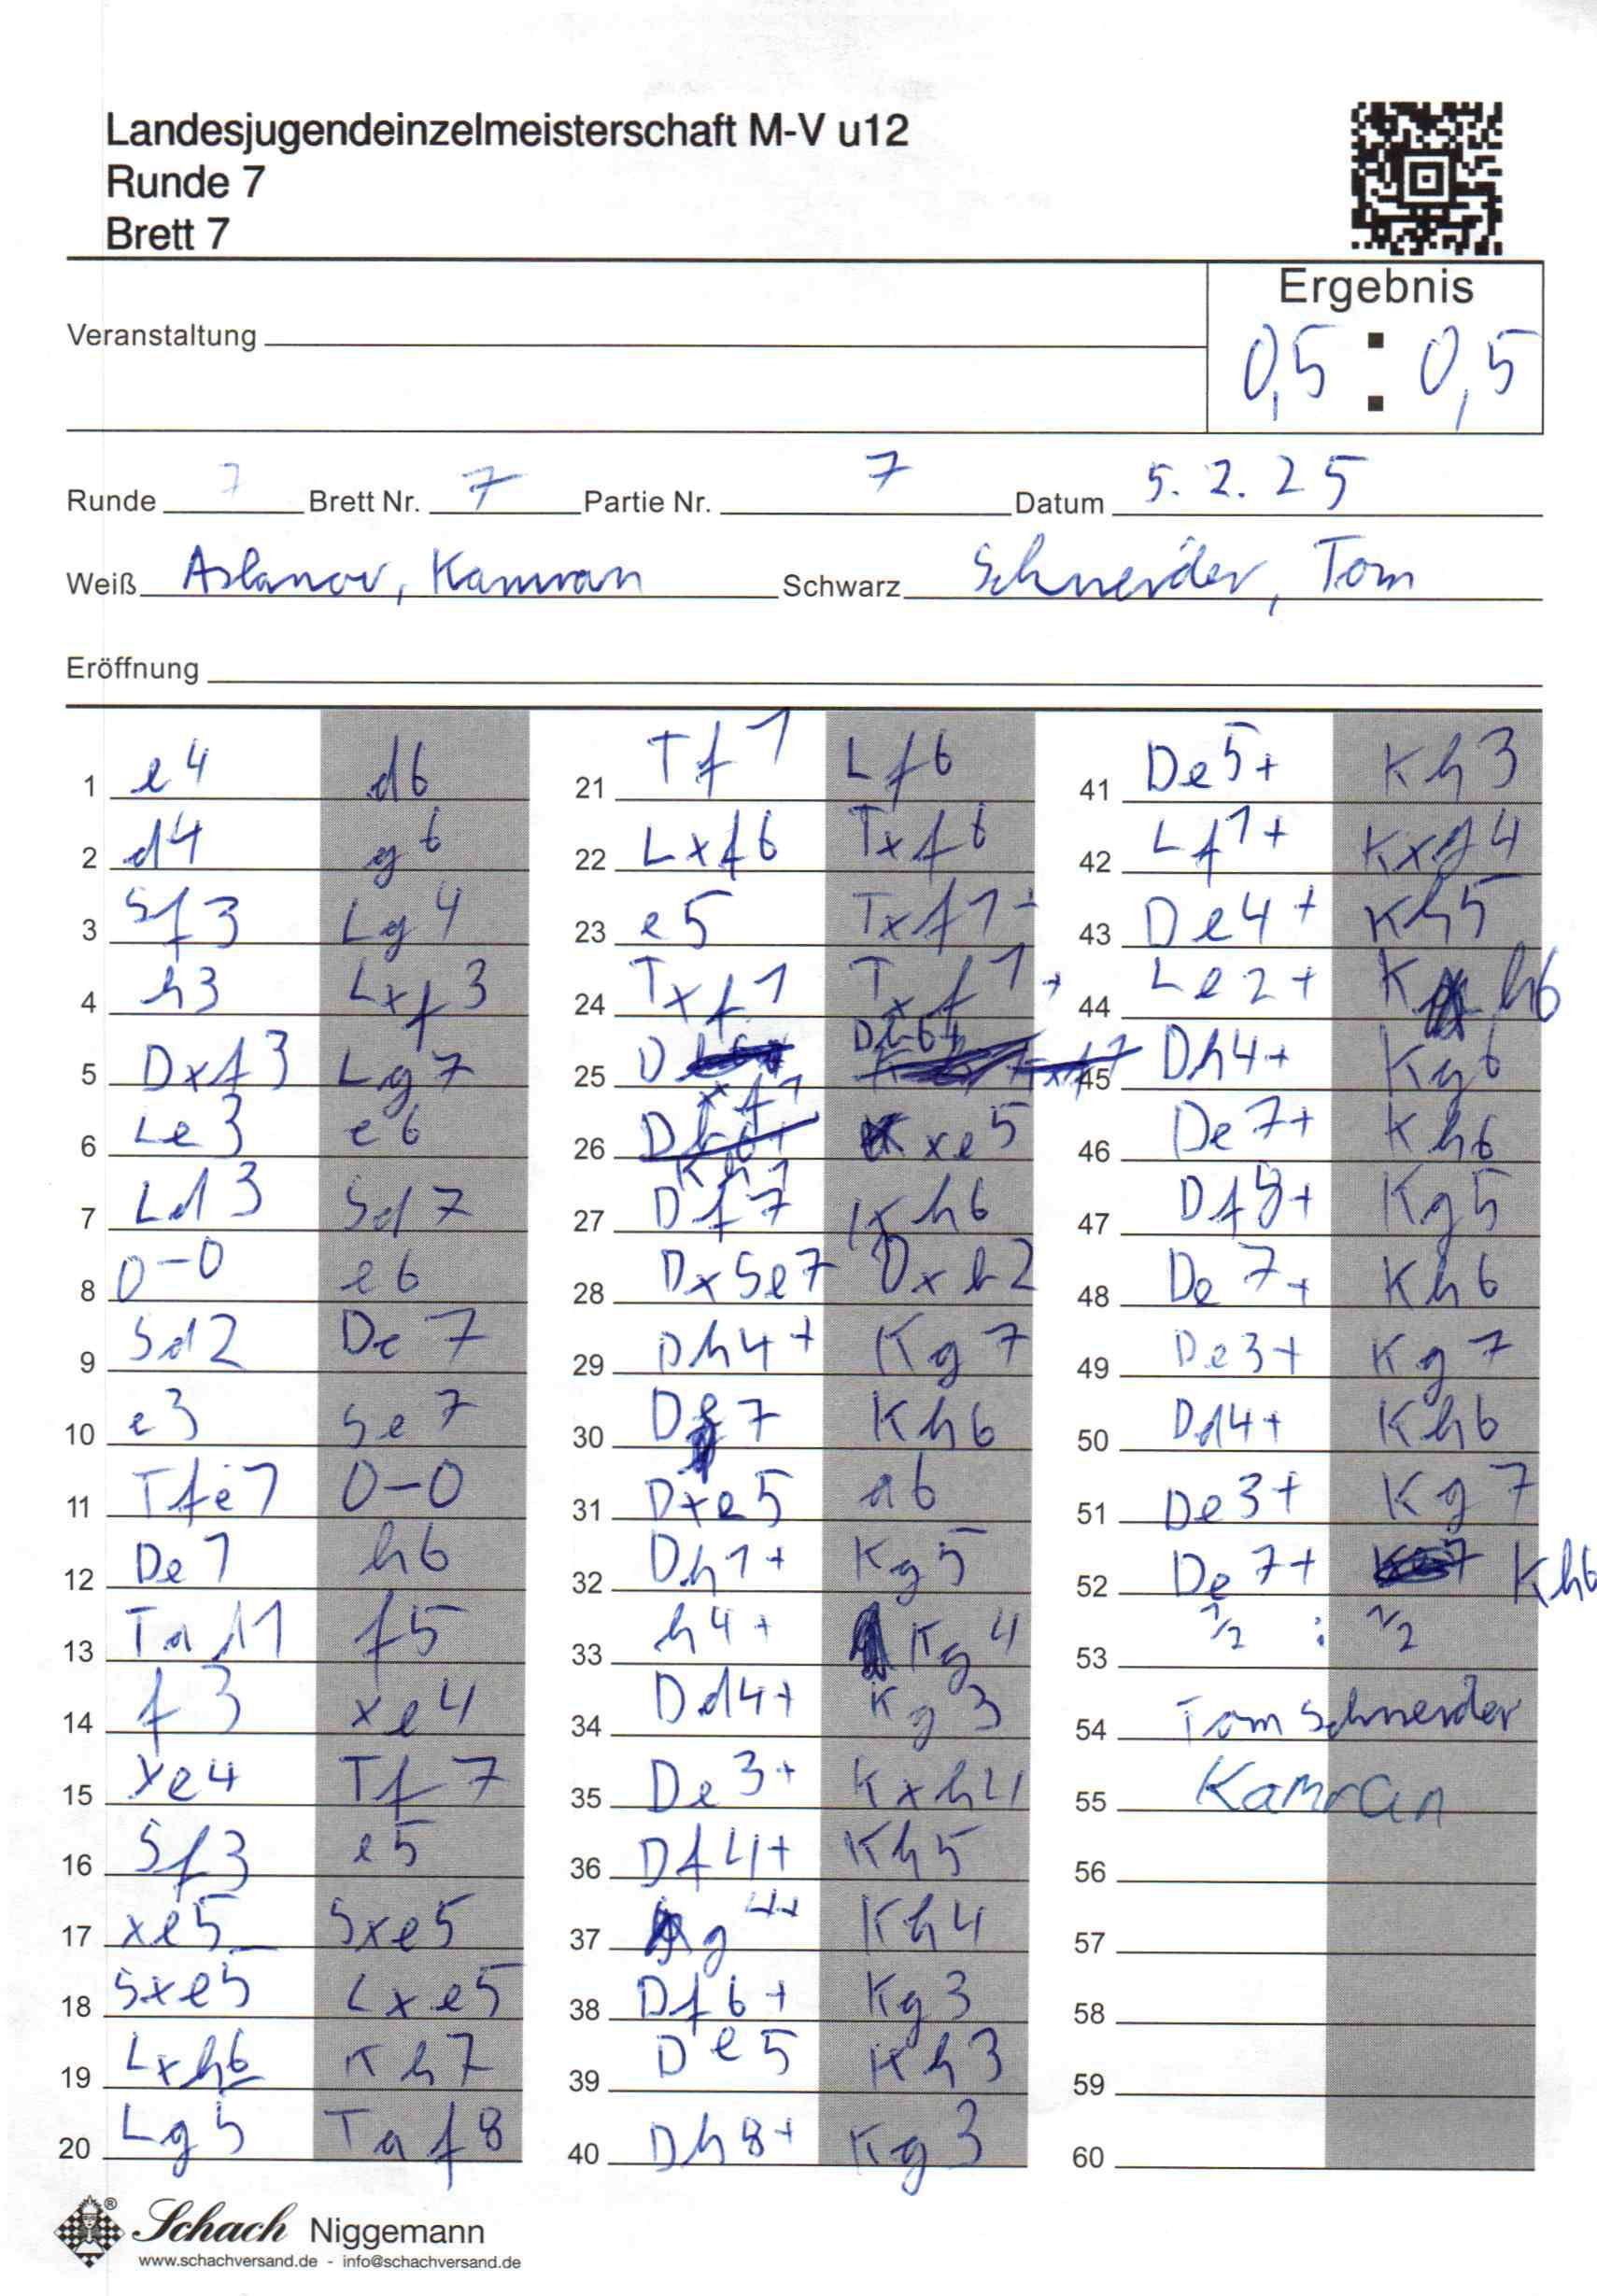 Landesjugendeinzelmeisterschaft M-V u12
Runde 7
Brett 7
Ergebnis
0,5 : 0,5
Veranstaltung
Runde 7 Brett Nr. 7 Partie Nr. 7 Datum 5.2.25
Weiß Aslanov, Kamran Schwarz Schneider, Tom
Eröffnung
1 e4 d6
2 d4 g6
3 Sf3 Lg4
4 h3 Lxf3
5 Dxf3 Lg7
6 Le3 e6
7 Ld3 Sd7
8 0-0 e6
9 Sd2 De7
10 e3 Se7
11 Tfe1 0-0
12 De1 h6
13 Tad1 f5
14 f3 xe4
15 xe4 Tf7
16 Sf3 e5
17 xe5 Sxe5
18 Sxe5 Lxe5
19 Lxh6 Kh7
20 Lg5 Taf8
21 Tf1 Lf6
22 Lxf6 Txf6
23 e5 Txf1+
24 Txf1 Txf1+
25 Dxf1 Db6+
26 Kh1 xe5
27 Df7 Kh6
28 DxSe7 Dxb2
29 Dh4+ Kg7
30 De7 Kh6
31 Dxe5 a6
32 Dh1+ Kg5
33 h4+ Kg4
34 Dd4+ Kg3
35 De3+ Kxh4
36 Df4+ Kh5
37 g4+ Kh4
38 Df6+ Kg3
39 De5 Kh3
40 Dh8+ Kg3
41 De5+ Kh3
42 Lf1+ Kxg4
43 De4+ Kh5
44 Le2+ Kh6
45 Dh4+ Kg6
46 De7+ Kh6
47 Df8+ Kg5
48 De7+ Kh6
49 De3+ Kg7
50 Dd4+ Kh6
51 De3+ Kg7
52 De7+ Kh6
53 1/2 : 1/2
54 Tom Schneider
55 Kamran
56
57
58
59
60
Schach Niggemann
www.schachversand.de - info@schachversand.de